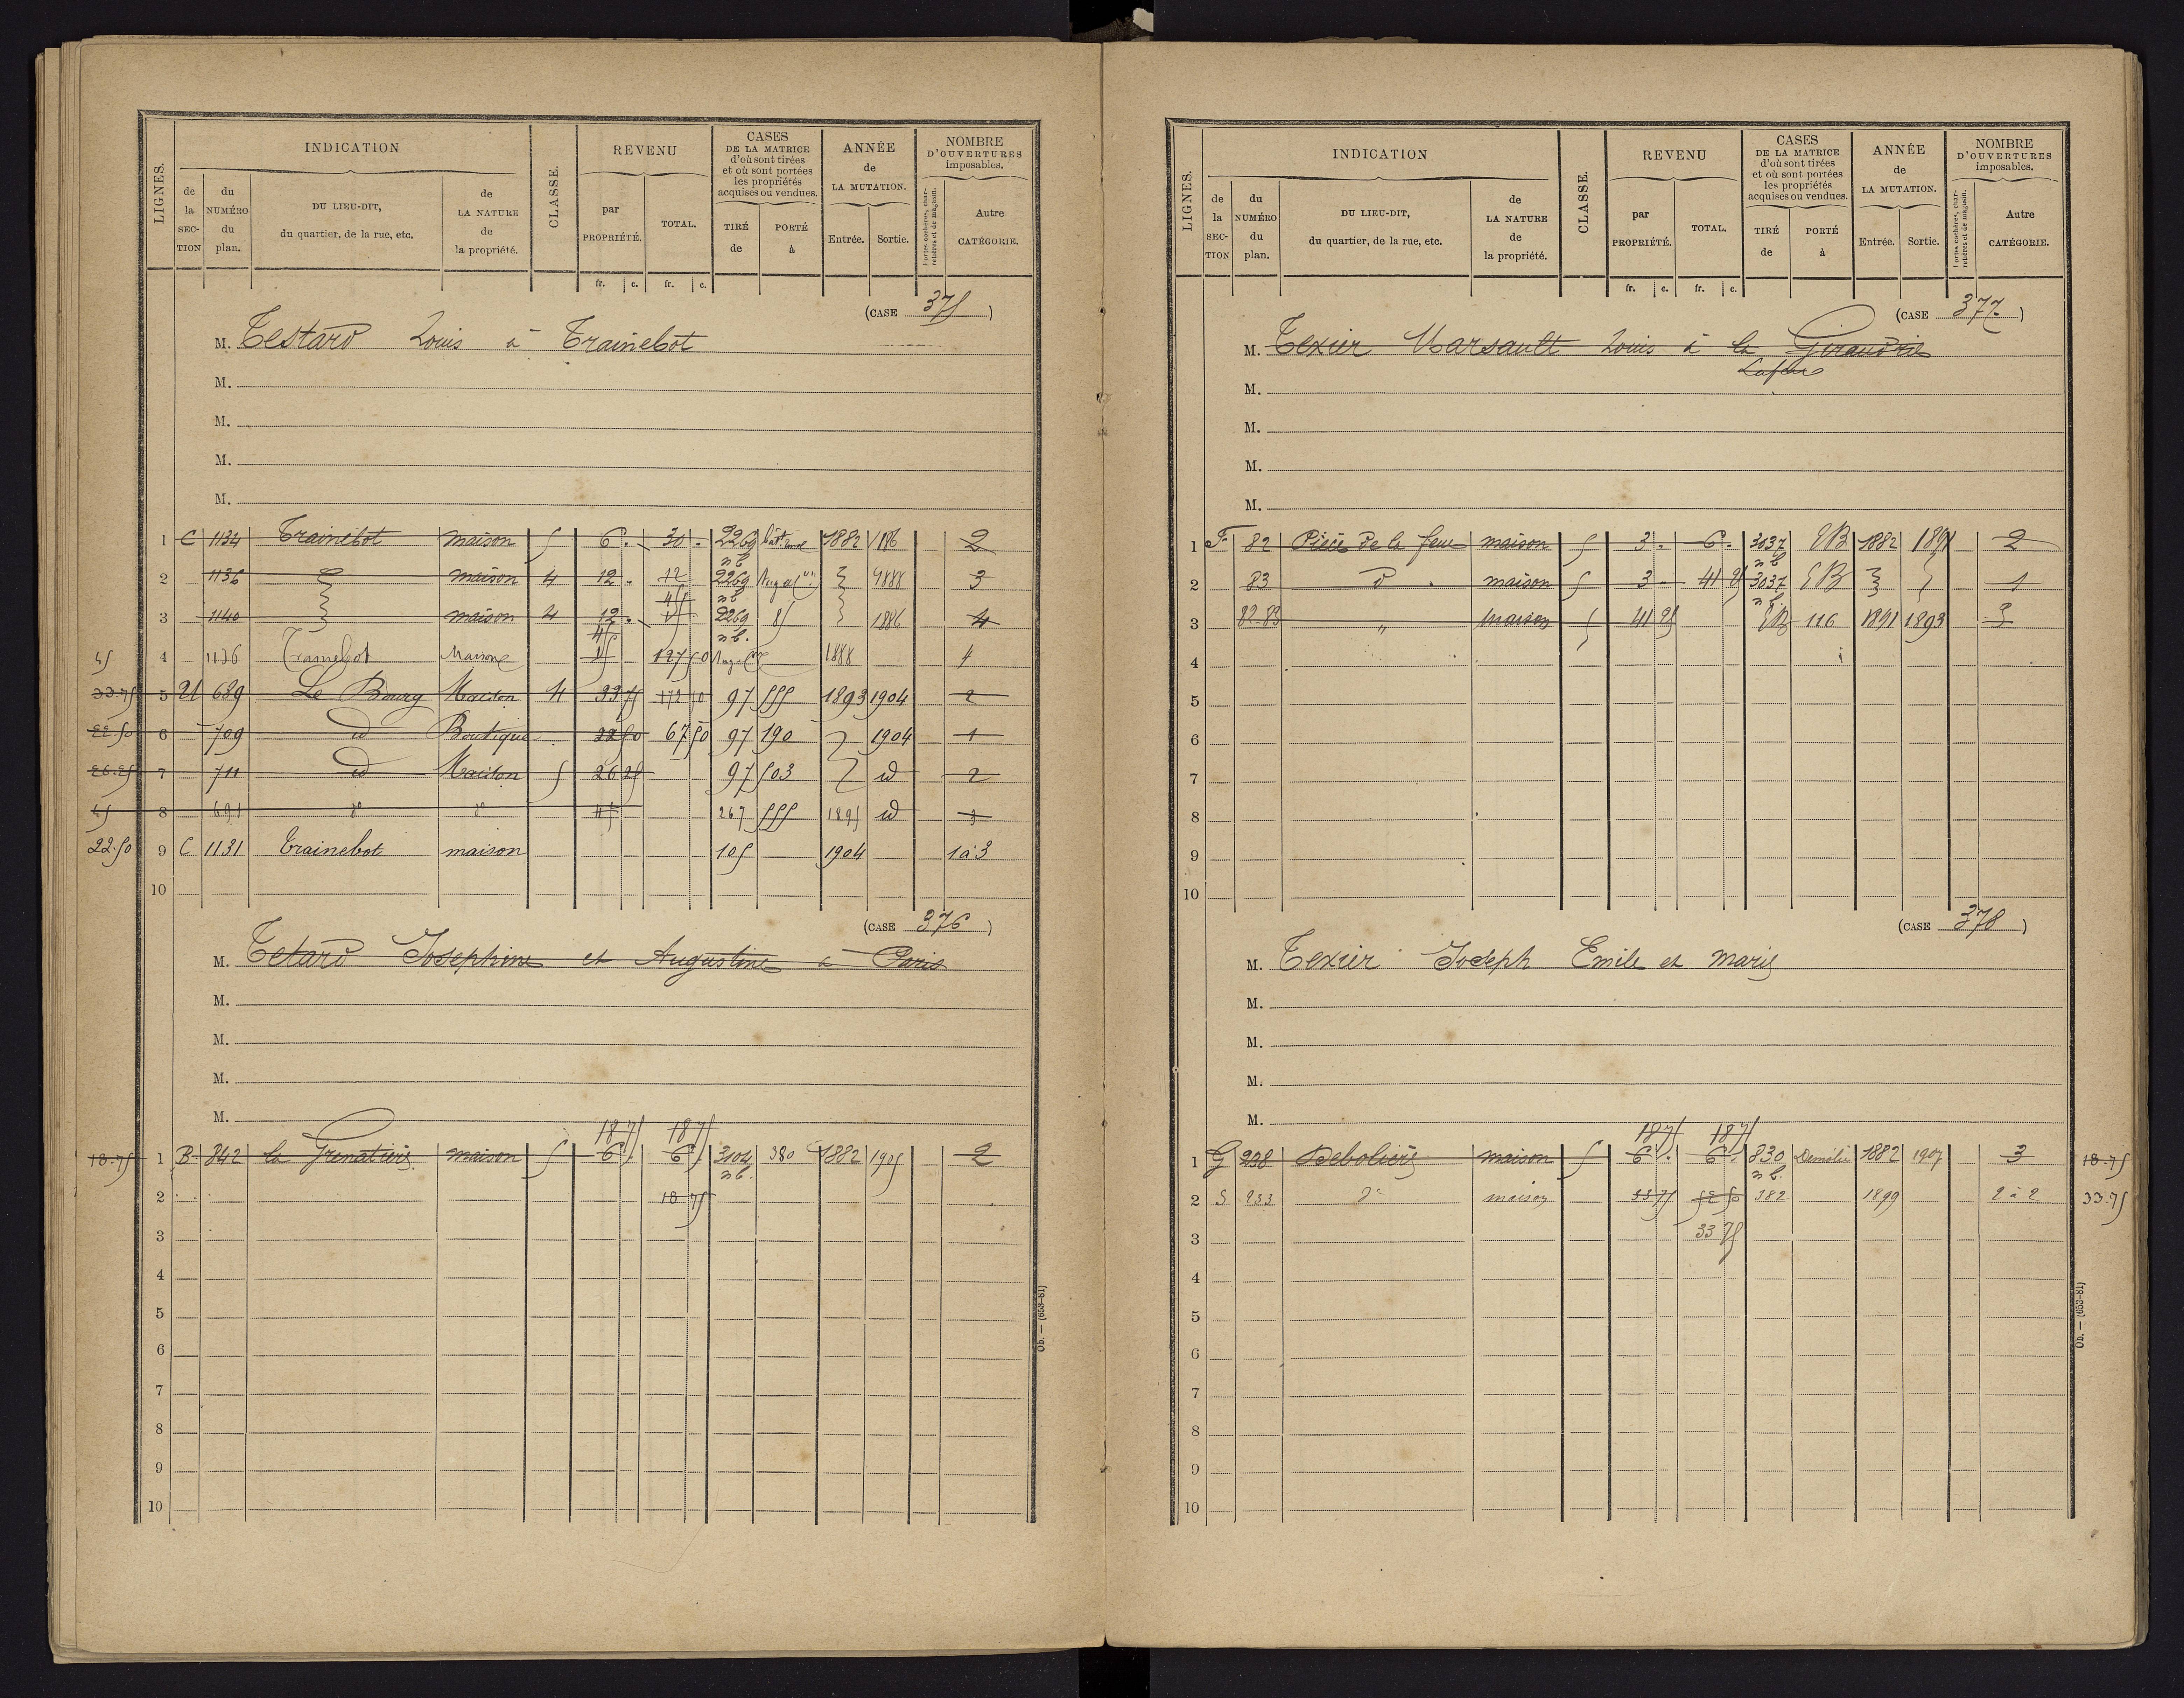 LIGNES. INDICATION CLASSE. REVENU CASES DE LA MATRICE d'où sont tirées et où sont portées les propriétés acquises ou vendues. ANNÉE de LA MUTATION. NOMBRE D'OUVERTURES imposables.
de la SECTION du NUMÉRO du plan. DU LIEU-DIT, du quartier, de la rue, etc. de LA NATURE de la propriété. par PROPRIÉTÉ. TOTAL. TIRÉ de PORTÉ à Entrée. Sortie. Portes cochères, charretières et de magasin. Autre CATÉGORIE.
fr. c. fr. c.
(CASE 375)
M. Testard Louis à Trainebot
M.
M.
M.
M.
1 C 1134 Trainebot maison 5 6. 30. 2269 nb 1882 1886 2
2 1136 maison 4 12. 12 2269 nb 1888 3
45
3 1140 maison 4 12. 2269 nb. 85 1886 4
45 4 1136 Trainebot Maison 45 127 50 1888 4
33.75 5 689 Le Bourg Maison 4 33 75 172 50 97 555 1893 1904 2
22.50 6 709 id Boutique 22 50 67 50 97 190 1904 1
26.25 7 711 id Maison 5 26 25 97 503 id 2
45 8 691 d° d° 45 267 555 1895 id 3
22.50 9 C 1131 Trainebot maison 105 1904 1 à 3
10
(CASE 376)
M. Tetard Josephine et Augustine à Paris
M.
M.
M.
M.
18 75 18 75
18.75 1 B. 842 la Grenatière maison 5 6. 6. 3104 nb. 380 1882 1905 2
2 18 75
3
4
5
6
7
8
9
10
Ob. — (653-81)
LIGNES. INDICATION CLASSE. REVENU CASES DE LA MATRICE d'où sont tirées et où sont portées les propriétés acquises ou vendues. ANNÉE de LA MUTATION. NOMBRE D'OUVERTURES imposables.
de la SECTION du NUMÉRO du plan. DU LIEU-DIT, du quartier, de la rue, etc. de LA NATURE de la propriété. par PROPRIÉTÉ. TOTAL. TIRÉ de PORTÉ à Entrée. Sortie. Portes cochères, charretières et de magasin. Autre CATÉGORIE.
fr. c. fr. c.
(CASE 377)
M. Texier Marsault Louis à la Giraudrie
M.
M.
M.
M.
1 F. 82 Pièce de la feue maison 5 3. 6. 3037 nb EB 1882 1891 2
2 83 d° maison 5 3 41 25 3037 nb EB 1
3 82 83 " maison 5 41 25 EB 116 1891 1893 3
4
5
6
7
8
9
10
(CASE 378)
M. Texier Joseph Emile et Marie
M.
M.
M.
M.
18 75 18 75
1 G 238 Debolière maison 5 6. 6. 830 nb. Démolie 1882 1907 3 18.75
2 S 233 d° maison 33 75 52 50 382 1899 2 à 2 33.75
3 33 75
4
5
6
7
8
9
10
Ob. — (653-81)